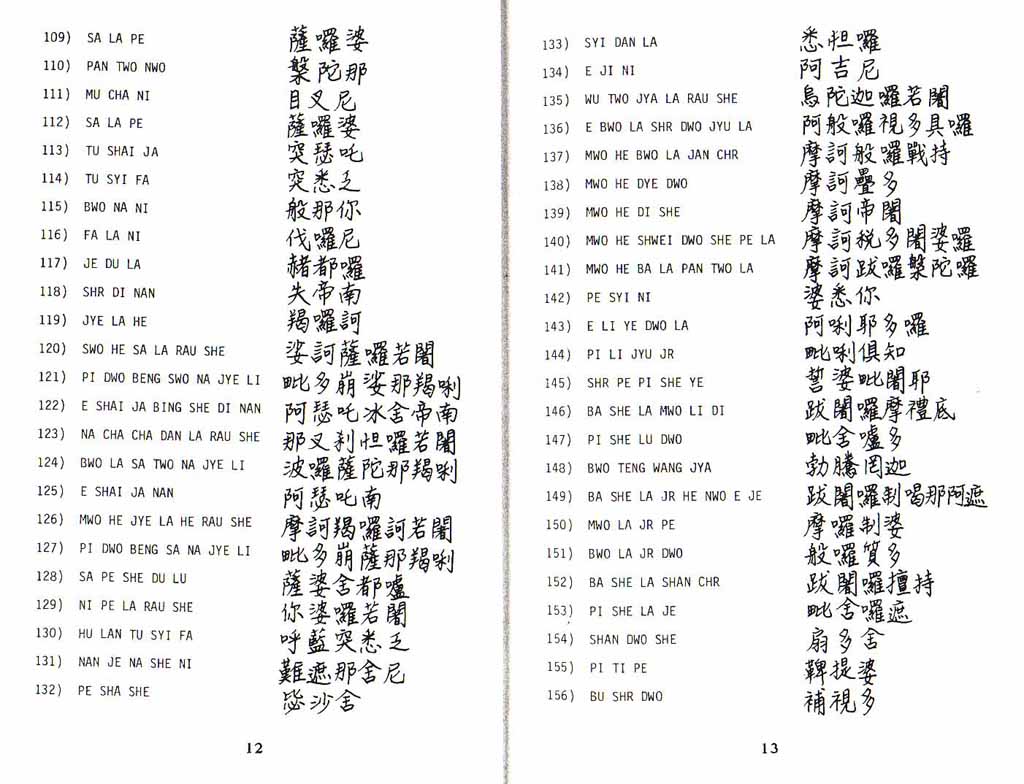 109) SA LA PE 薩囉婆
110) PAN TWO NWO 槃陀那
111) MU CHA NI 目叉尼
112) SA LA PE 薩囉婆
113) TU SHAI JA 突瑟吒
114) TU SYI FA 突悉乏
115) BWO NA NI 般那你
116) FA LA NI 伐囉尼
117) JE DU LA 赭都囉
118) SHR DI NAN 失帝南
119) JYE LA HE 羯囉訶
120) SWO HE SA LA RAU SHE 娑訶薩囉若闍
121) PI DWO BENG SWO NA JYE LI 毗多崩娑那羯唎
122) E SHAI JA BING SHE DI NAN 阿瑟吒冰舍帝南
123) NA CHA CHA DAN LA RAU SHE 那叉剎怛囉若闍
124) BWO LA SA TWO NA JYE LI 波囉薩陀那羯唎
125) E SHAI JA NAN 阿瑟吒南
126) MWO HE JYE LA HE RAU SHE 摩訶羯囉訶若闍
127) PI DWO BENG SA NA JYE LI 毗多崩薩那羯唎
128) SA PE SHE DU LU 薩婆舍都嚧
129) NI PE LA RAU SHE 你婆囉若闍
130) HU LAN TU SYI FA 呼藍突悉乏
131) NAN JE NA SHE NI 難遮那舍尼
132) PE SHA SHE 毖沙舍
12
133) SYI DAN LA 悉怛囉
134) E JI NI 阿吉尼
135) WU TWO JYA LA RAU SHE 烏陀迦囉若闍
136) E BWO LA SHR DWO JYU LA 阿般囉視多具囉
137) MWO HE BWO LA JAN CHR 摩訶般囉戰持
138) MWO HE DYE DWO 摩訶疊多
139) MWO HE DI SHE 摩訶帝闍
140) MWO HE SHWEI DWO SHE PE LA 摩訶稅多闍婆囉
141) MWO HE BA LA PAN TWO LA 摩訶跋囉槃陀囉
142) PE SYI NI 婆悉你
143) E LI YE DWO LA 阿唎耶多囉
144) PI LI JYU JR 毗唎俱知
145) SHR PE PI SHE YE 誓婆毗闍耶
146) BA SHE LA MWO LI DI 跋闍囉摩禮底
147) PI SHE LU DWO 毗舍嚧多
148) BWO TENG WANG JYA 勃騰罔迦
149) BA SHE LA JR HE NWO E JE 跋闍囉制喝那阿遮
150) MWO LA JR PE 摩囉制婆
151) BWO LA JR DWO 般囉質多
152) BA SHE LA SHAN CHR 跋闍囉擅持
153) PI SHE LA JE 毗舍囉遮
154) SHAN DWO SHE 扇多舍
155) PI TI PE 鞞提婆
156) BU SHR DWO 補視多
13